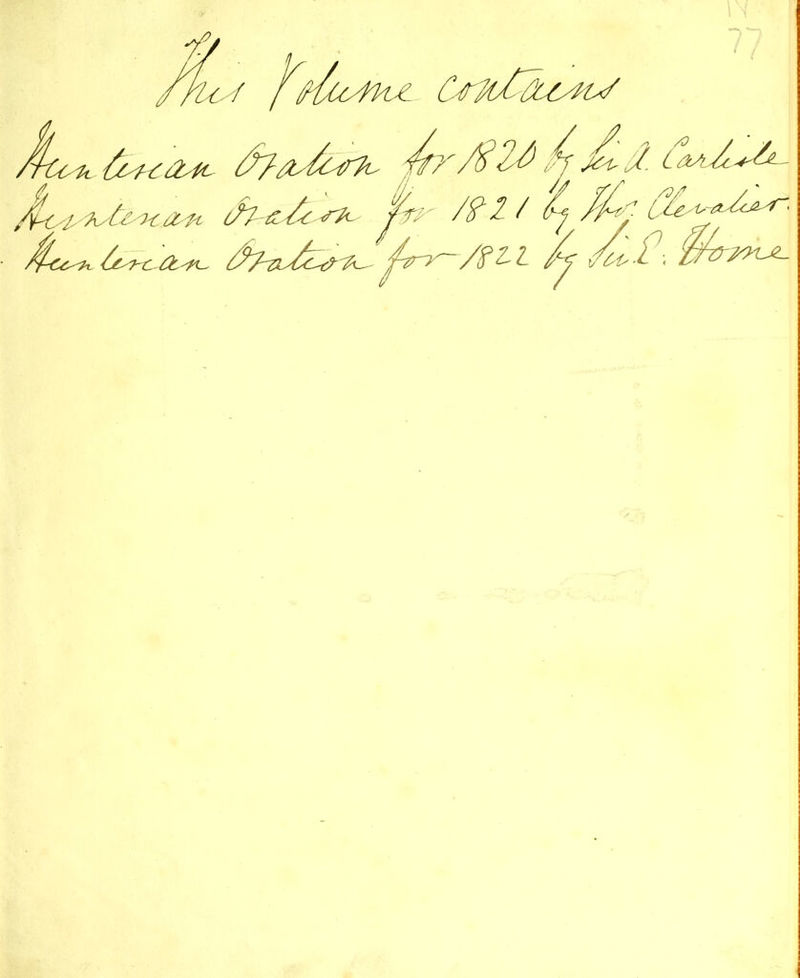 77
This Volume contains
Hunterian Oration for 1820 by Sir A. Carlisle
Hunterian Oration for 1821 by Thos. Chevalier.
Hunterian Oration for 1822 by Sir E. Home